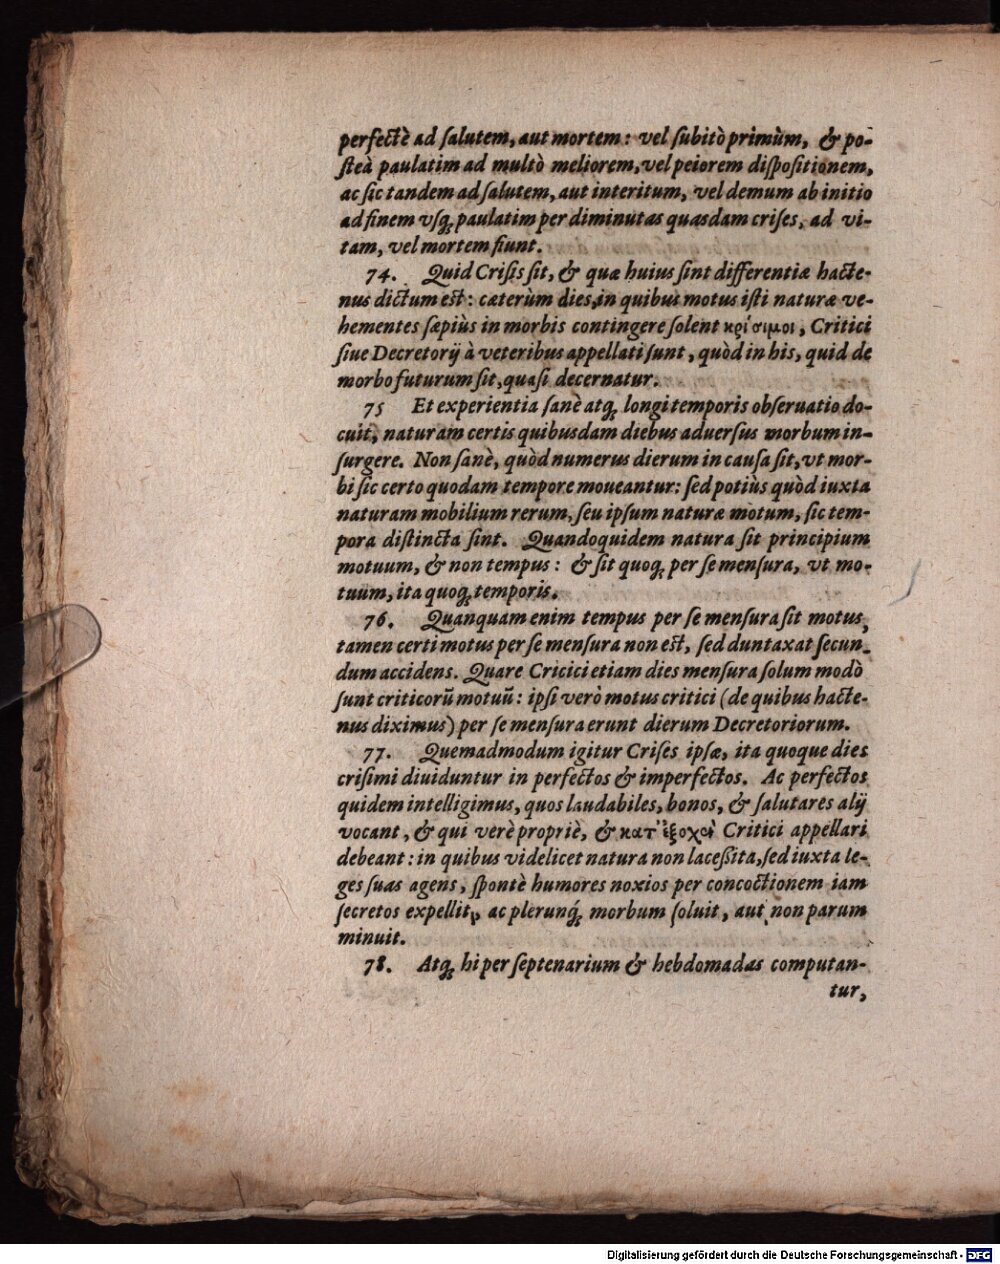 perfectè ad ſalutem, aut mortem: vel ſubitò primùm, & po-
ſteà paulatim ad multò meliorem, vel peiorem diſpoſitionem,
ac ſic tandem ad ſalutem, aut interitum, vel demum ab initio
ad finem vſq; paulatim per diminutas quasdam criſes, ad vi-
tam, vel mortem fiunt.
74. Quid Criſis ſit, & quæ huius ſint differentiæ hacte-
nus dictum est: cæterùm dies, in quibus motus iſti naturæ ve-
hementes ſæpiùs in morbis contingere ſolent κρίσιμοι, Critici
ſiue Decretorij à veteribus appellati ſunt, quòd in his, quid de
morbo futurum ſit, quaſi decernatur.
75 Et experientia ſanè atq; longi temporis obſeruatio do-
cuit, naturam certis quibusdam diebus aduerſus morbum in-
ſurgere. Non ſanè, quòd numerus dierum in cauſa ſit, vt mor-
bi ſic certo quodam tempore moueantur: ſed potiùs quòd iuxta
naturam mobilium rerum, ſeu ipſum naturæ motum, ſic tem-
pora diſtincta ſint. Quandoquidem natura ſit principium
motuum, & non tempus: & ſit quoq; per ſe menſura, vt mo-
tuùm, ita quoq; temporis.
76. Quanquam enim tempus per ſe menſura ſit motus,
tamen certi motus per ſe menſura non est, ſed duntaxat ſecun-
dum accidens. Quare Cricici etiam dies menſura ſolum modò
ſunt criticorũ motuũ: ipſi verò motus critici (de quibus hacte-
nus diximus) per ſe menſura erunt dierum Decretoriorum.
77. Quemadmodum igitur Criſes ipſæ, ita quoque dies
criſimi diuiduntur in perfectos & imperfectos. Ac perfectos
quidem intelligimus, quos laudabiles, bonos, & ſalutares alij
vocant, & qui verè propriè, & κατ' ἐξοχὼ Critici appellari
debeant: in quibus videlicet natura non laceßita, ſed iuxta le-
ges ſuas agens, ſpontè humores noxios per concoctionem iam
ſecretos expellit, ac plerunq́; morbum ſoluit, aut non parum
minuit.
78. Atq; hi per ſeptenarium & hebdomadas computan-
tur,
Digitalisierung gefördert durch die Deutsche Forschungsgemeinschaft - DFG